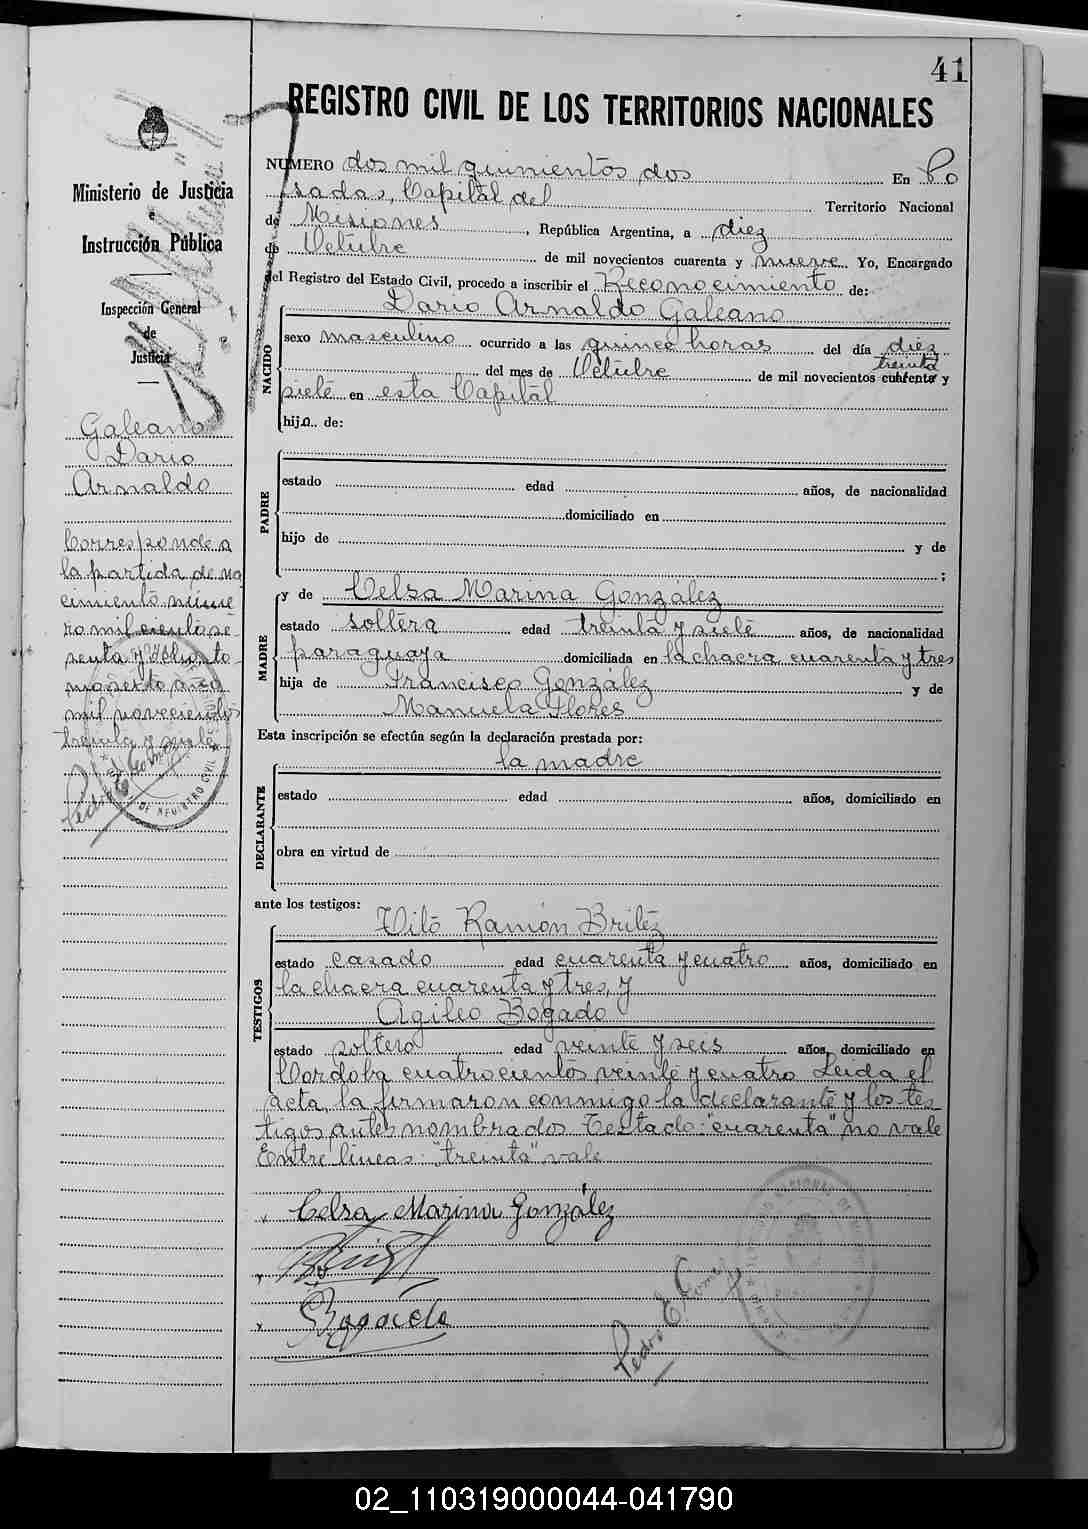 41
REGISTRO CIVIL DE LOS TERRITORIOS NACIONALES
Ministerio de Justicia
e
Instrucción Pública
Inspección General
de
Justicia
Galeano
Dario
Arnaldo
Corresponde a
la partida de na
cimiento núme
ro mil ciento se
senta y
año
mil novecientos
treinta y siete
Pedro E. Gomez
DE REGISTRO CIVIL
NUMERO dos mil quinientos dos En Po
sadas, Capital del Territorio Nacional
de Misiones, República Argentina, a diez
de Octubre de mil novecientos cuarenta y nueve Yo, Encargado
del Registro del Estado Civil, procedo a inscribir el Reconocimiento de:
Dario Arnaldo Galeano
NACIDO
sexo masculino ocurrido a las quince horas del día diez
del mes de Octubre de mil novecientos cuarenta treinta y
siete en esta Capital
hijo.. de:
PADRE
estado edad años, de nacionalidad
domiciliado en
hijo de y de
;
MADRE
y de Celsa Marina González
estado soltera edad treinta y siete años, de nacionalidad
paraguaya domiciliada en la chacra cuarenta y tres
hija de Francisco González y de
Manuela Flores
Esta inscripción se efectúa según la declaración prestada por:
la madre
DECLARANTE
estado edad años, domiciliado en
obra en virtud de
ante los testigos:
TESTIGOS
Vito Ramón Britez
estado casado edad cuarenta y cuatro años, domiciliado en
la chacra cuarenta y tres, y
Agileo Bogado
estado soltero edad veinte y seis años, domiciliado en
Cordoba cuatrocientos veinte y cuatro Leida el
acta, la firmaron conmigo la declarante y los tes
tigos antes nombrados Testado: "cuarenta" no vale
Entre lineas: "treinta" vale
Celsa Marina González
Bogado
Pedro E. Gomez
02_110319000044-041790